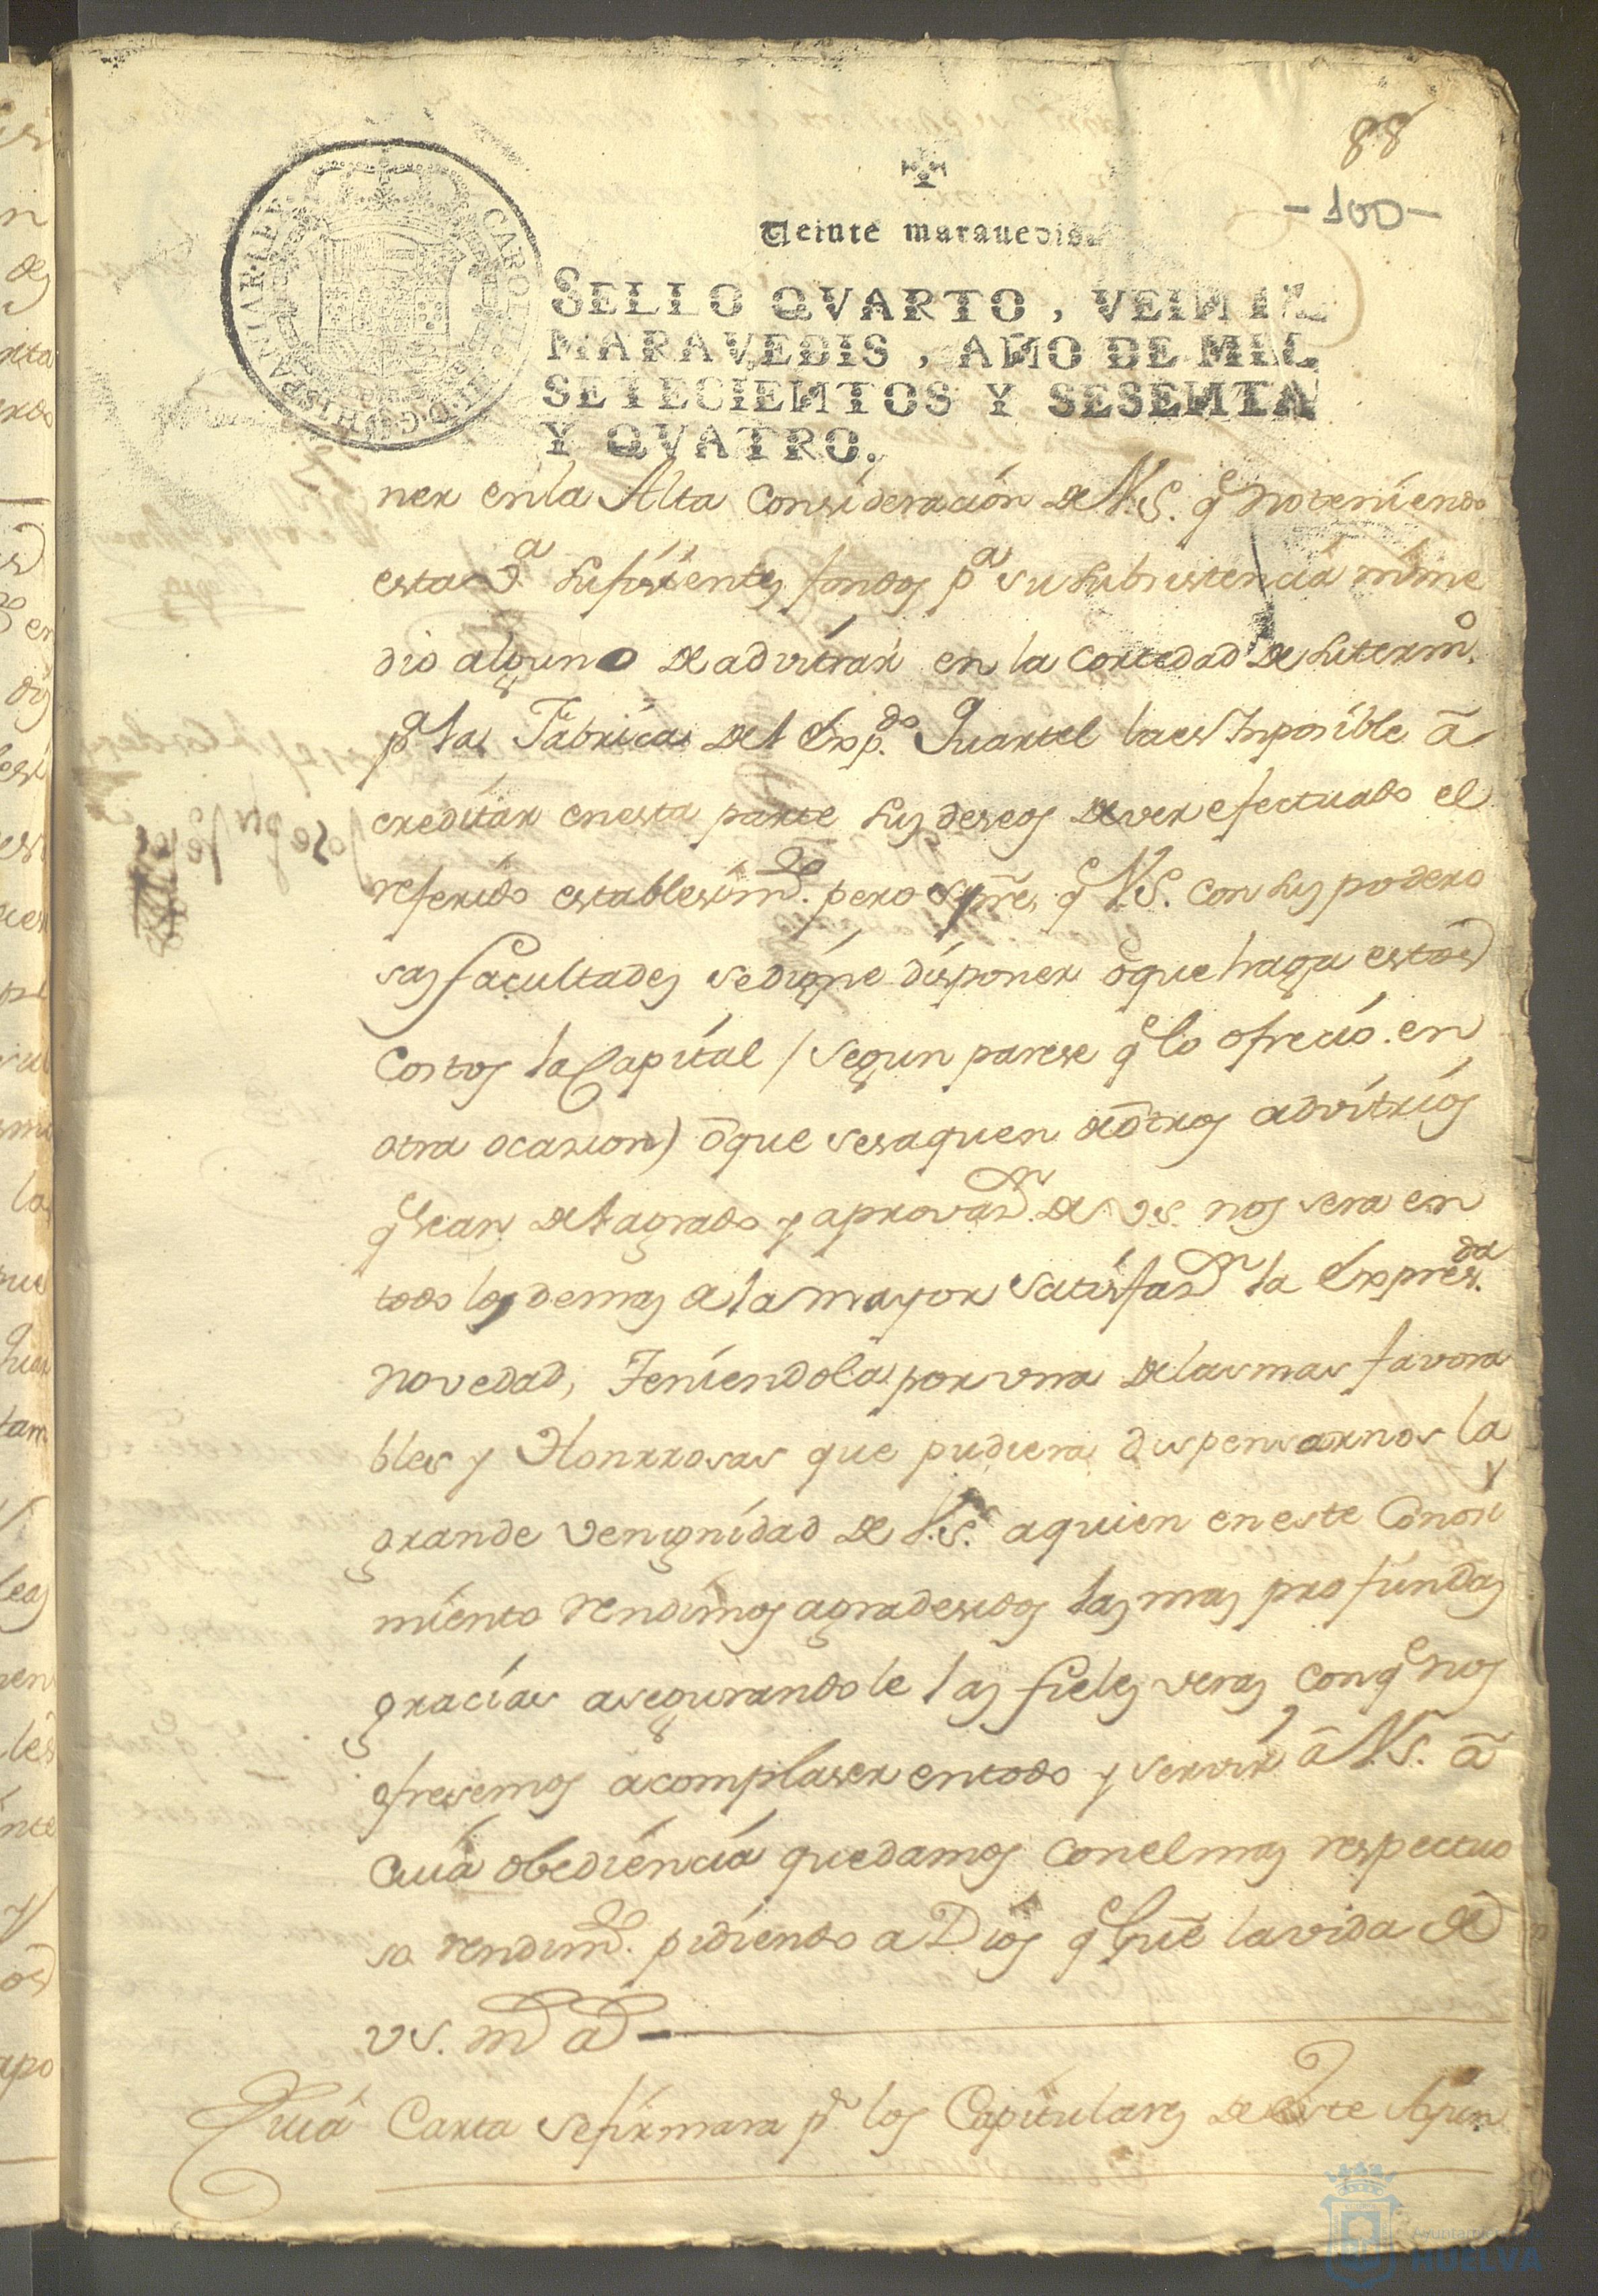 88
-100-
Veinte marauedis.
SELLO QVARTO, VEINTE
MARAVEDIS, AÑO DE MIL
SETECIENTOS Y SESENTA
Y QVATRO.
CAROLUS III D.G. HISPANIAR. REX
ner en la Alta Consideracion de V.S. q̃ no teniendo
esta va sufisientes fondos pa su subsistencia ni me
dio alguno de advitrar en la cortedad de su termo.
pa la Fabrica del Exp.do Quartel la es Inposible a
creditar en esta parte sus deseos de ver efectuado el
referido establesim.to pero Spre, q̃ V.S. con sus podero
sas facultades se digne disponer ò que haga estos
costos la Capital / segun parese q̃ lo ofrecio en
otra ocasion) ò que se saquen de otros advitrios
q̃ sean del agrado y aprovaon. de VS. nos sera en
todo los demas de la mayor satisfaon la Expres.da
novedad, Teniendola por una de las mas favora
bles y Honrrosas que pudiera dispensarnos la
grande venignidad de V.S. a quien en este Conosi
miento rendimos agradesidos las mas profundas
gracias asegurandole las fieles veras con q̃ nos
ofresemos a complaser en todo y servir à V.S. à
cuia obediencia quedamos con el mas respectuo
so rendim.to pidiendo a Dios q̃ gue la vida de
VS. ms as
Cuia Carta se firmara pr los Capitulares de Este Ayun
Ayuntamiento de
HUELVA